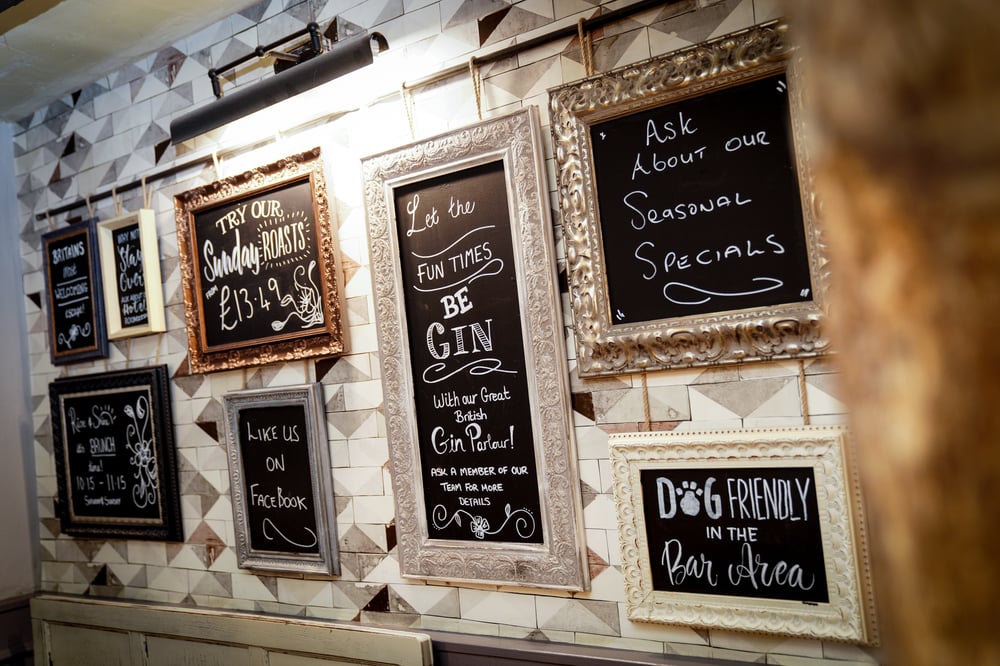 BRITAINS
MOST
WELCOMING
ESCAPE!
WHY NOT
Stay
Over
ASK ABOUT OUR
Hotel
TRY OUR
Sunday ROASTS
FROM
£13.49
Let the
FUN TIMES
BE
GIN
With our Great
British
Gin Parlour!
ASK A MEMBER OF OUR
TEAM FOR MORE
DETAILS
"Ask
About our
Seasonal
Specials"
Rise & Shine
its BRUNCH
time!
10:15 - 11:15
LIKE US
ON
FACEBOOK
DOG FRIENDLY
IN THE
Bar Area